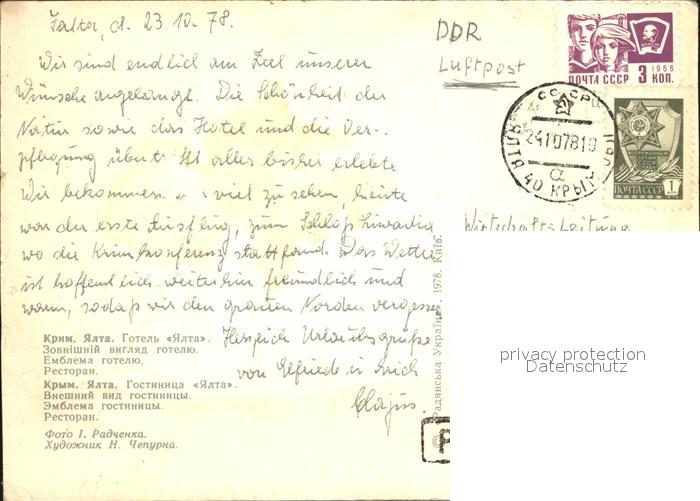 Jalta, d. 23.10.78.
DDR
Luftpost
Wir sind endlich am Ziel unserer
Wünsche angelangt. Die Schönheit der
Natur sowie das Hotel und die Ver-
pflegung übertrifft alles bisher erlebte
Wir bekommen viel zu sehen, heute
war der erste Ausflug, zum Schloß Liwadia
wo die Krimkonferenz stattfand. Das Wetter
ist hoffendlich weiterhin freundlich und
warm, sodaß wir den grauen Norden vergessen
Herzlich Urlaubsgrüße
von Elfriede u Erich
Wirtschaftsleitung
ПОЧТА СССР 3 КОП.
1966
ПОЧТА СССР 1
СССР
24107810
КРЫМ
Крим. Ялта. Готель «Ялта».
Зовнішній вигляд готелю.
Емблема готелю.
Ресторан.
Крым. Ялта. Гостиница «Ялта».
Внешний вид гостиницы.
Эмблема гостиницы.
Ресторан.
Фото І. Радченка.
Художник Н. Чепурна.
Радянська Україна. 1978. Київ.
privacy protection
Datenschutz